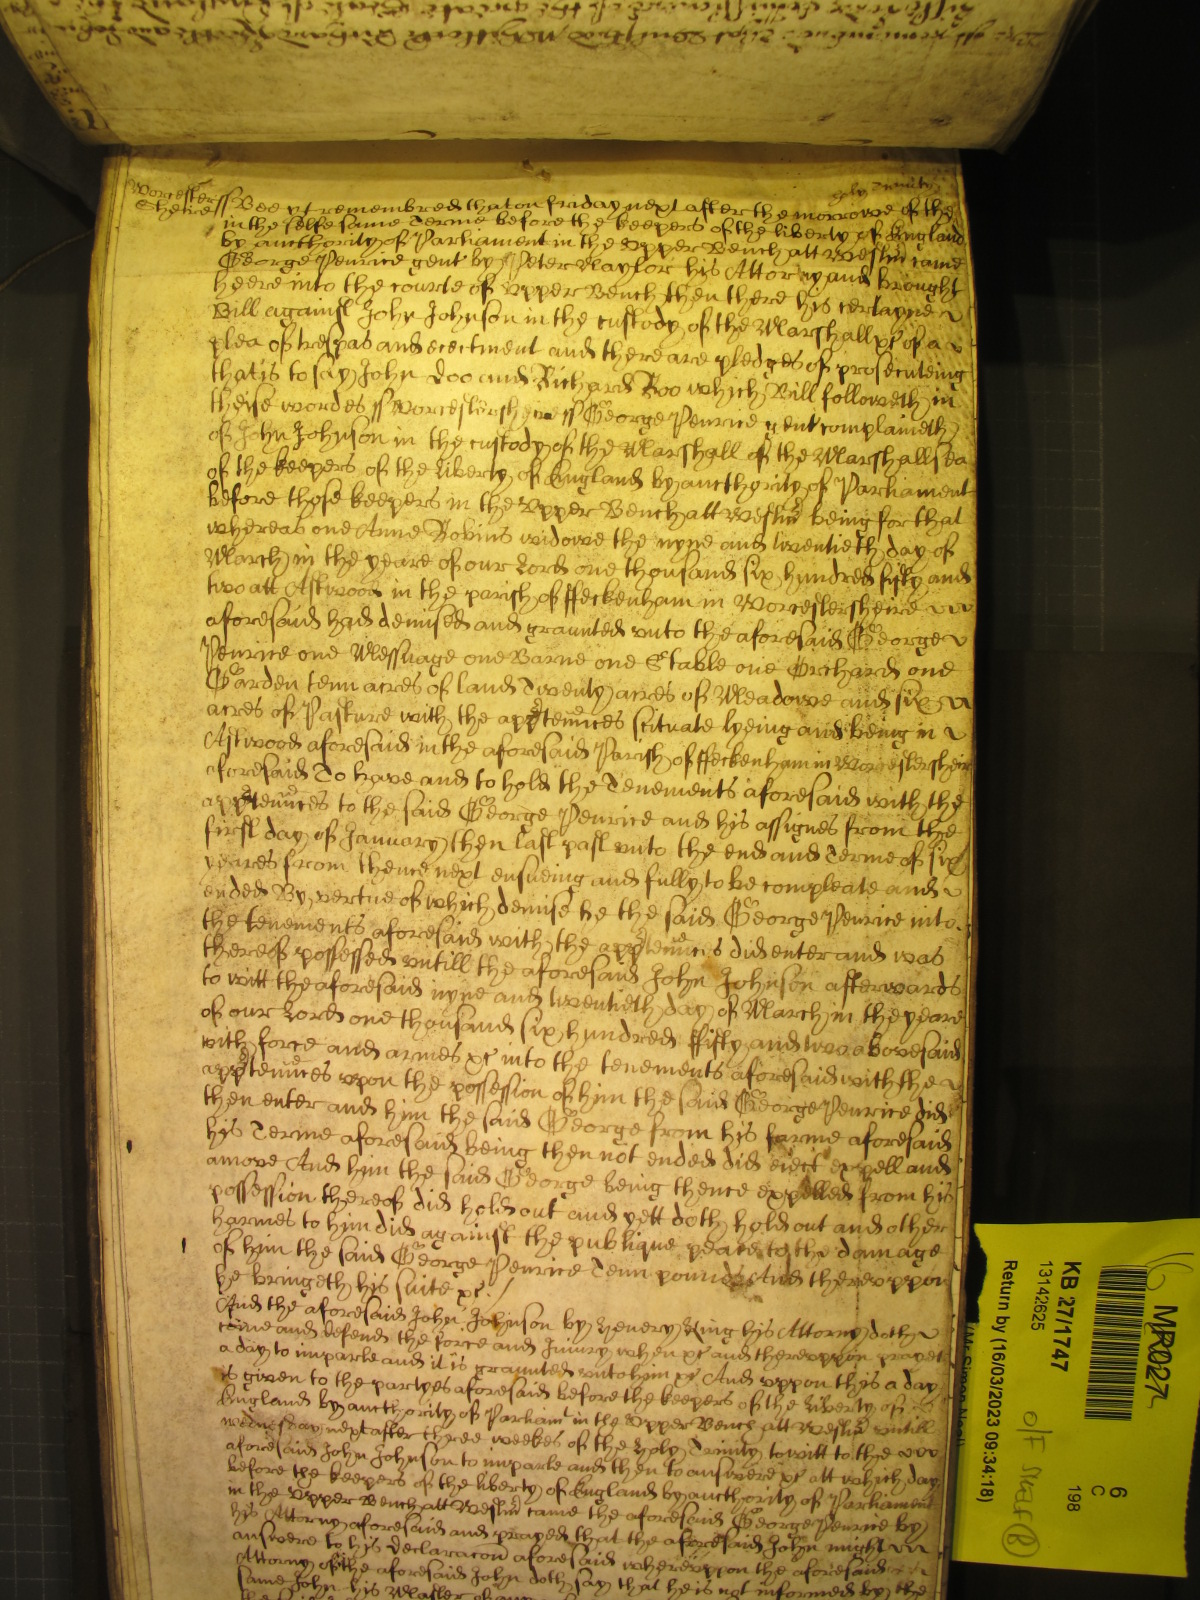 Worcester
Sheire ss Bee yt remembred that on friday next after the morrowe of the holy Trinity
in the selfe same Terme before the keepers of the liberty of England
by aucthority of Parliament in the Upper Bench att Westmr came
George Penrice gent by Peter Naylor his Attorny and brought
heere into the courte of Upper Bench then there his certayne
Bill against John Johnson in the custody of the Marshall &c of a
plea of trespas and eiectment and there are pledges of prosecuteing
that is to say John Doo and Richard Roo which Bill followeth in
theise wordes ss Worcestersheire ss George Penrice gent complaineth
of John Johnson in the custody of the Marshall of the Marshallsea
of the keepers of the Liberty of England by aucthority of Parliament
before those keepers in the Upper Bench att Westmr being for that
whereas one Anne Robins widowe the nyne and twentieth day of
March in the yeare of our Lord one thousand six hundred fifty and
two att Astwood in the parish of ffeckenham in Worcestersheire
aforesaid had demised and graunted unto the aforesaid George
Penrice one Messuage one Barne one Stable one Orchard one
Garden tenn acres of land Twenty acres of Meadowe and six
acres of Pasture with the apptennces scituate lyeing and being in
Astwood aforesaid in the aforesaid Parish of ffeckenham in Worcestersheire
aforesaid To have and to hold the Tenements aforesaid with the
apptennces to the said George Penrice and his assignes from the
first day of January then last past unto the end and Terme of six
yeares from thence next ensueing and fully to be compleate and
ended By vertue of which demise he the said George Penrice into
the tenements aforesaid with the apptennces did enter and was
thereof possessed untill the aforesaid John Johnson afterwards
to witt the aforesaid nyne and twentieth day of March in the yeare
of our Lord one thousand six hundred ffifty and two abovesaid
with force and armes &c into the tenements aforesaid with the
apptennces upon the possession of him the said George Penrice did
then enter and him the said George from his farme aforesaid
his Terme aforesaid being then not ended did eiect expell and
amove And him the said George being thence expelled from his
possession thereof did hold out and yett doth hold out and other
harmes to him did against the publique peace to the damage
of him the said George Penrice Tenn pounds And thereuppon
he bringeth his suite &c
And the aforesaid John Johnson by Henery King his Attorny doth
come and defend the force and Iniury when &c and thereuppon prayeth
a day to imparle and it is graunted unto him &c And uppon this a day
is given to the partyes aforesaid before the keepers of the liberty of
England by aucthority of Parliamt in the Upper Bench att Westmr untill
wednesday next after three weekes of the holy Trinity to witt to the
aforesaid John Johnson to imparle and then to answere &c att which day
before the keepers of the liberty of England by aucthority of Parliament
in the Upper Bench att Westmr came the aforesaid George Penrice by
his Attorny aforesaid and prayed that the aforesaid John might
answere to his declaracon aforesaid whereuppon the aforesaid
Attorny of the aforesaid John doth say that he is not informed by the
same John his Master
MR027
KB 27/1747
13142625
Return by (16/03/2023 09:34:18)
6
C
198
O/F